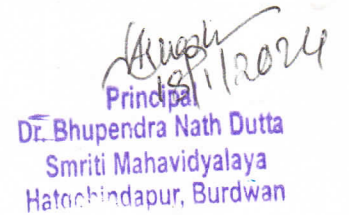 18/1/2024
Principal
Dr. Bhupendra Nath Dutta
Smriti Mahavidyalaya
Hatgobindapur, Burdwan